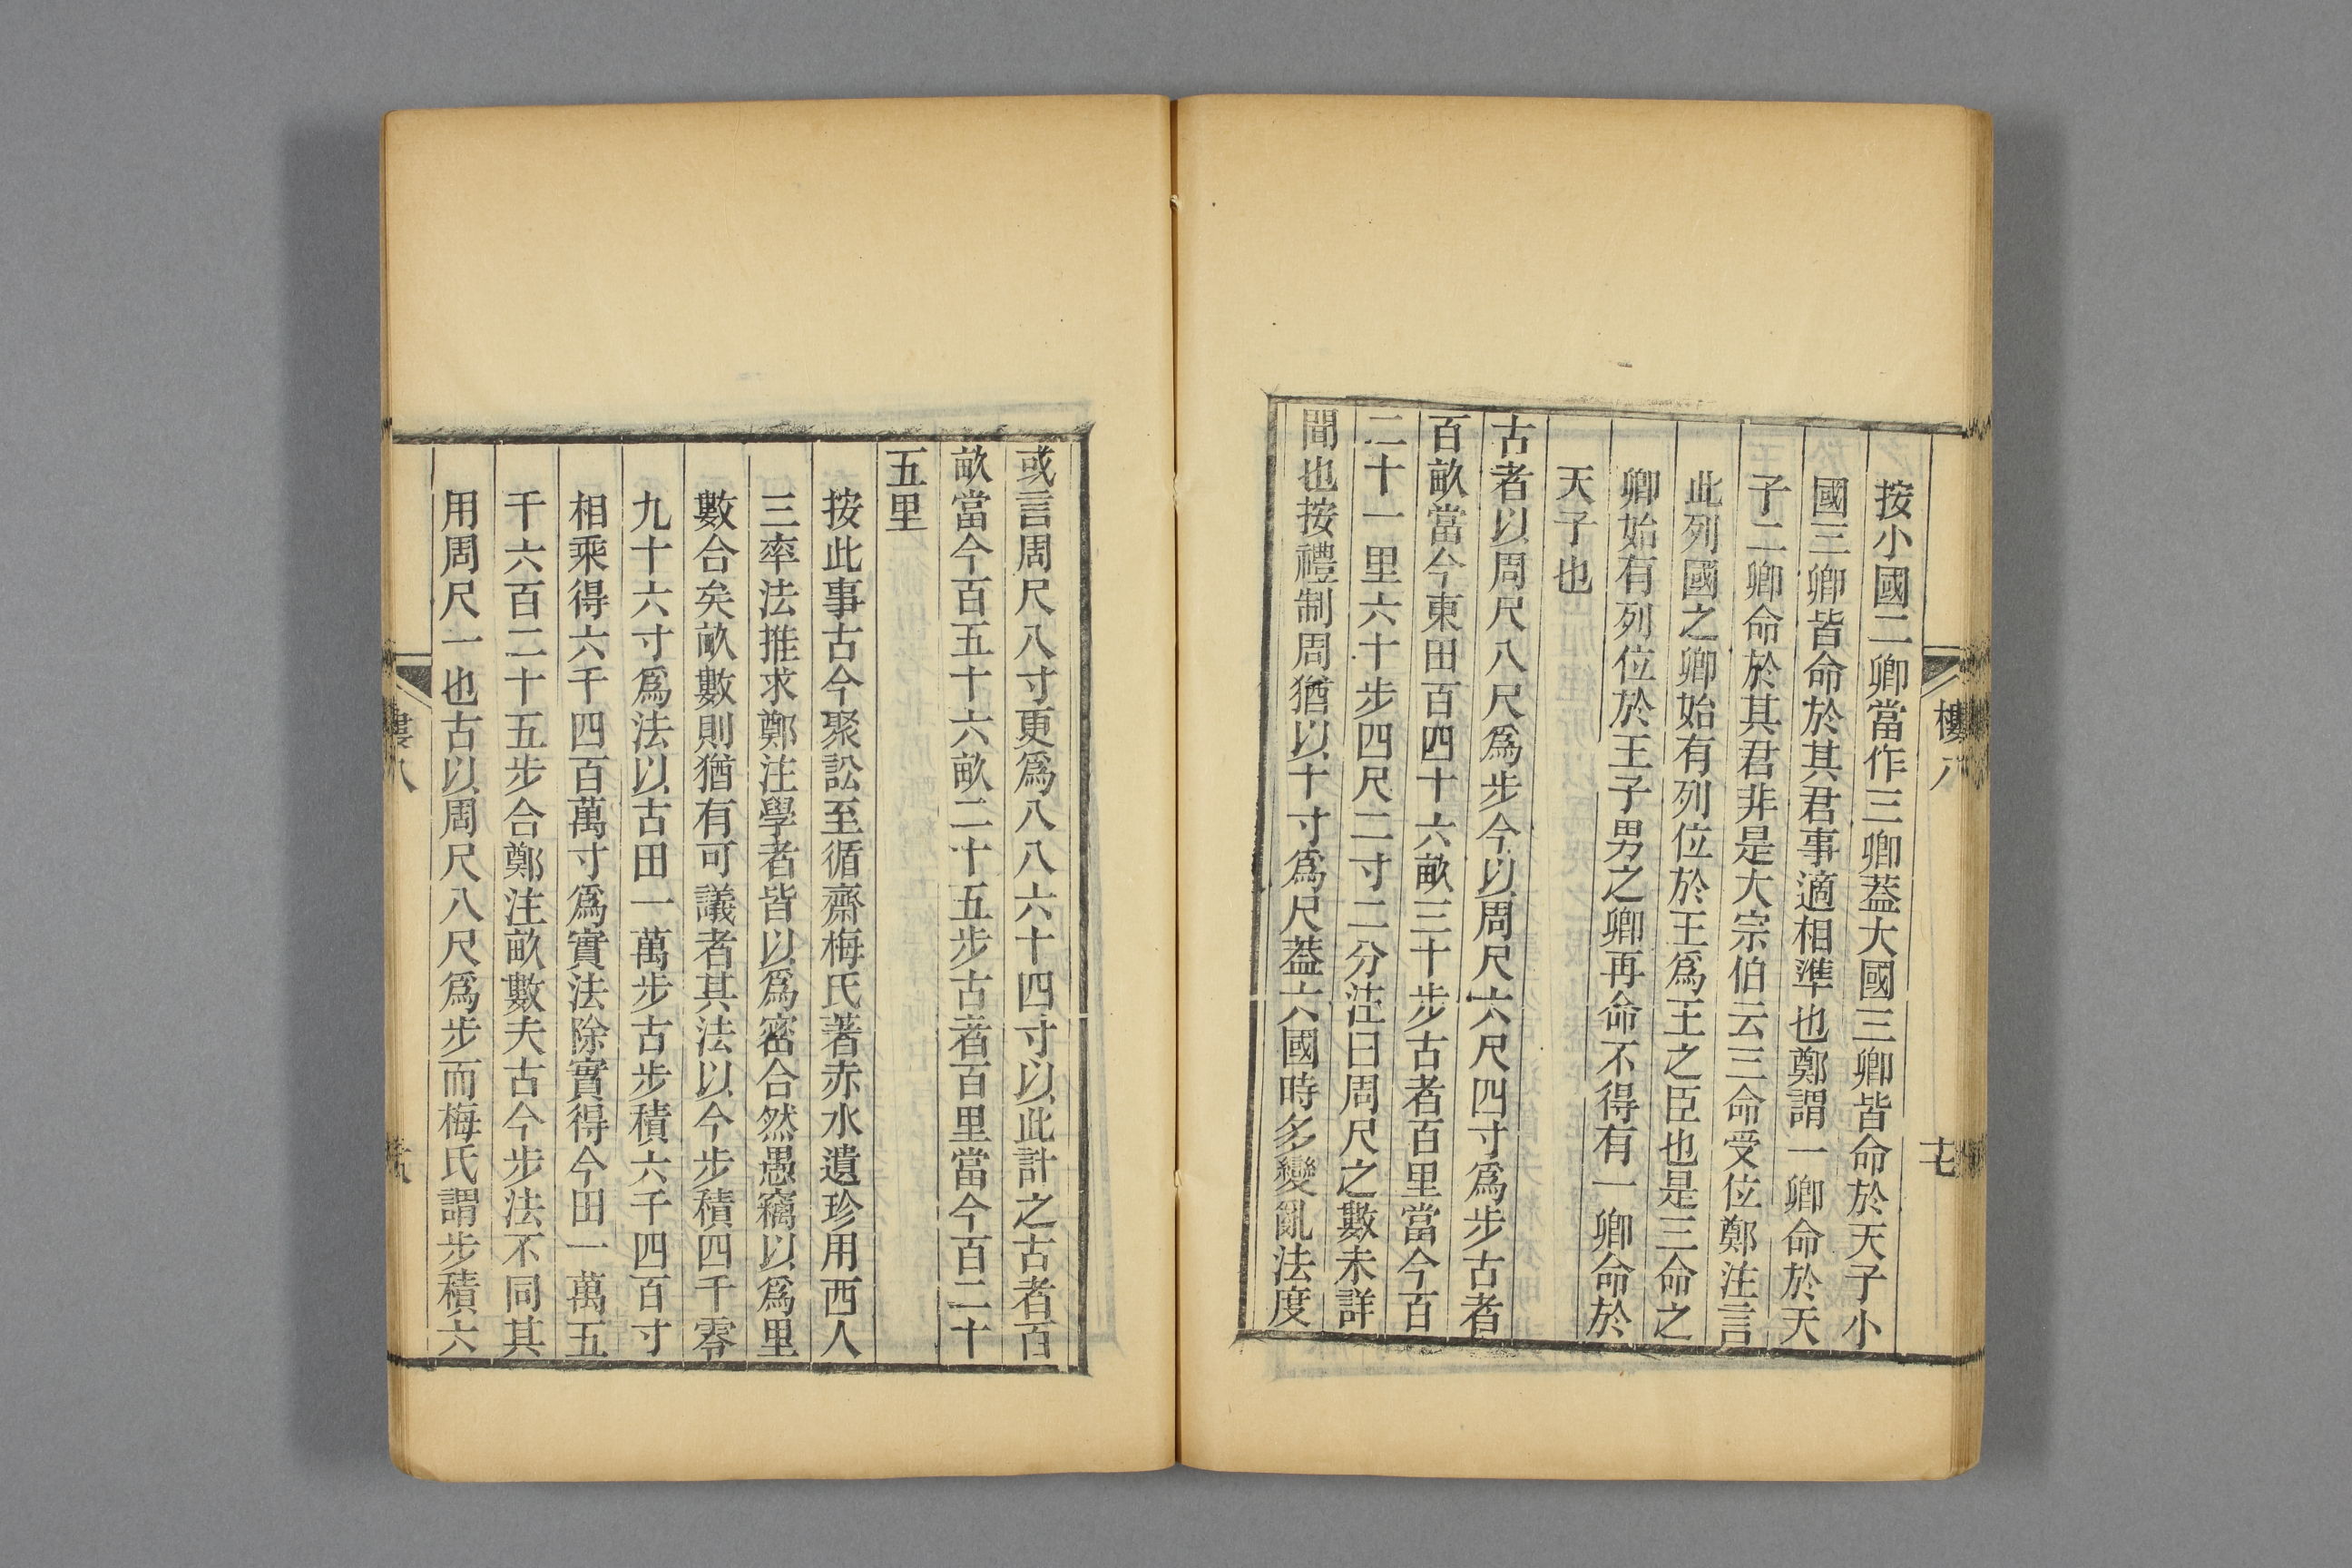 按小國二卿當作三卿蓋大國三卿皆命於天子小
國三卿皆命於其君事適相準也鄭謂一卿命於天
子二卿命於其君非是大宗伯云三命受位鄭注言
此列國之卿始有列位於王爲王之臣也是三命之
卿始有列位於王子男之卿再命不得有一卿命於
天子也
古者以周尺八尺爲步今以周尺六尺四寸爲步古者
百畝當今東田百四十六畝三十步古者百里當今百
二十一里六十步四尺二寸二分注曰周尺之數未詳
聞也按禮制周猶以十寸爲尺蓋六國時多變亂法度
或言周尺八寸更爲八八六十四寸以此計之古者百
畝當今百五十六畝二十五步古者百里當今百二十
五里
按此事古今聚訟至循齋梅氏著赤水遺珍用西人
三率法推求鄭注學者皆以爲密合然愚竊以爲里
數合矣畝數則猶有可議者其法以今步積四千零
九十六寸爲法以古田一萬步古步積六千四百寸
相乘得六千四百萬寸爲實法除實得今田一萬五
千六百二十五步合鄭注畝數夫古今步法不同其
用周尺一也古以周尺八尺爲步而梅氏謂步積六
樓八